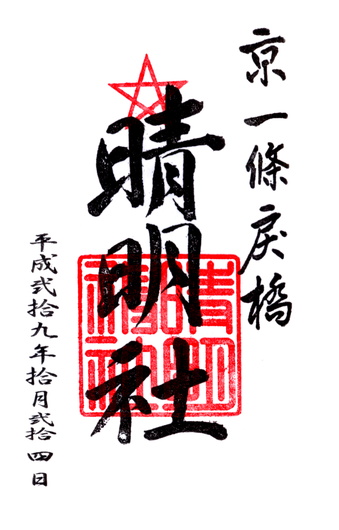 京一條戻橋
晴明社
平成弐拾九年拾月弐拾四日